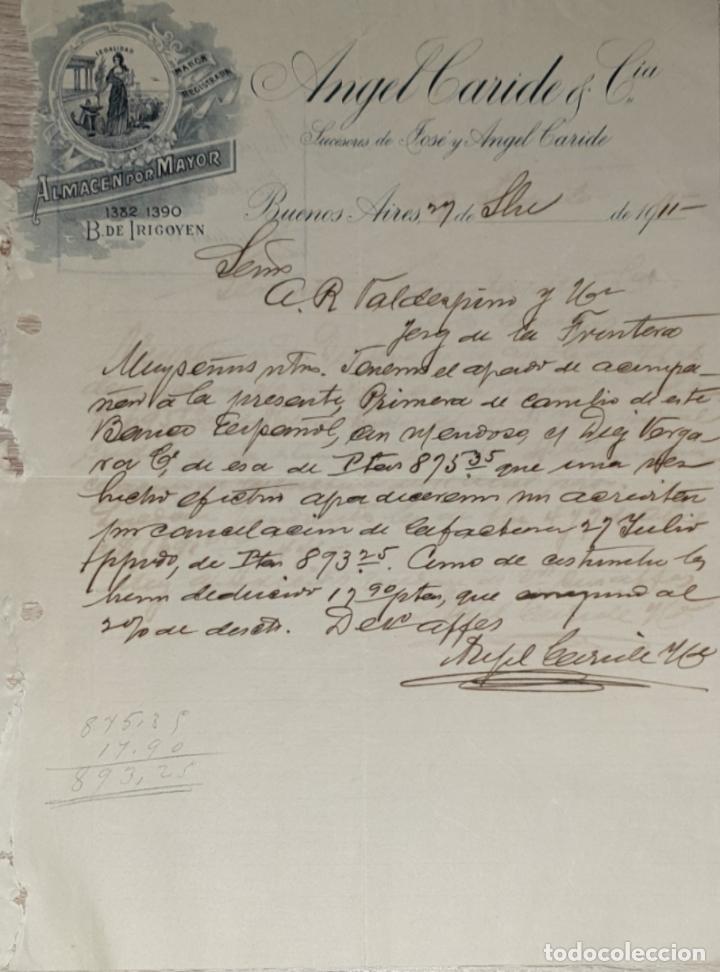 LEGALIDAD
MARCA
REGISTRADA
ALMACEN POR MAYOR
1382 1390
B. DE IRIGOYEN
Angel Caride & Cia
Sucesores de José y Angel Caride
Buenos Aires, 27 de de 1911
Señs
A. R. Valdespino y Hno
Jerez de la Frontera
Muy señrs ntros. Tenemos el agrado de acompa-
ñar á la presente, Primera de cambio de este
Banco Español, c/ Diez Verga
ra Cª de esa de Ptas 875.35 que una vez
hecho efectivo agradeceremos nos acrediten
por cancelacion de la factura 27 Julio
ppdo, de Ptas 893.25. Como de costumbre les
hemos deducido 17.90 ptas, que al
2% de descto. De Vs affes
Angel Caride y Cia
875.35
17.90
893,25
todocoleccion